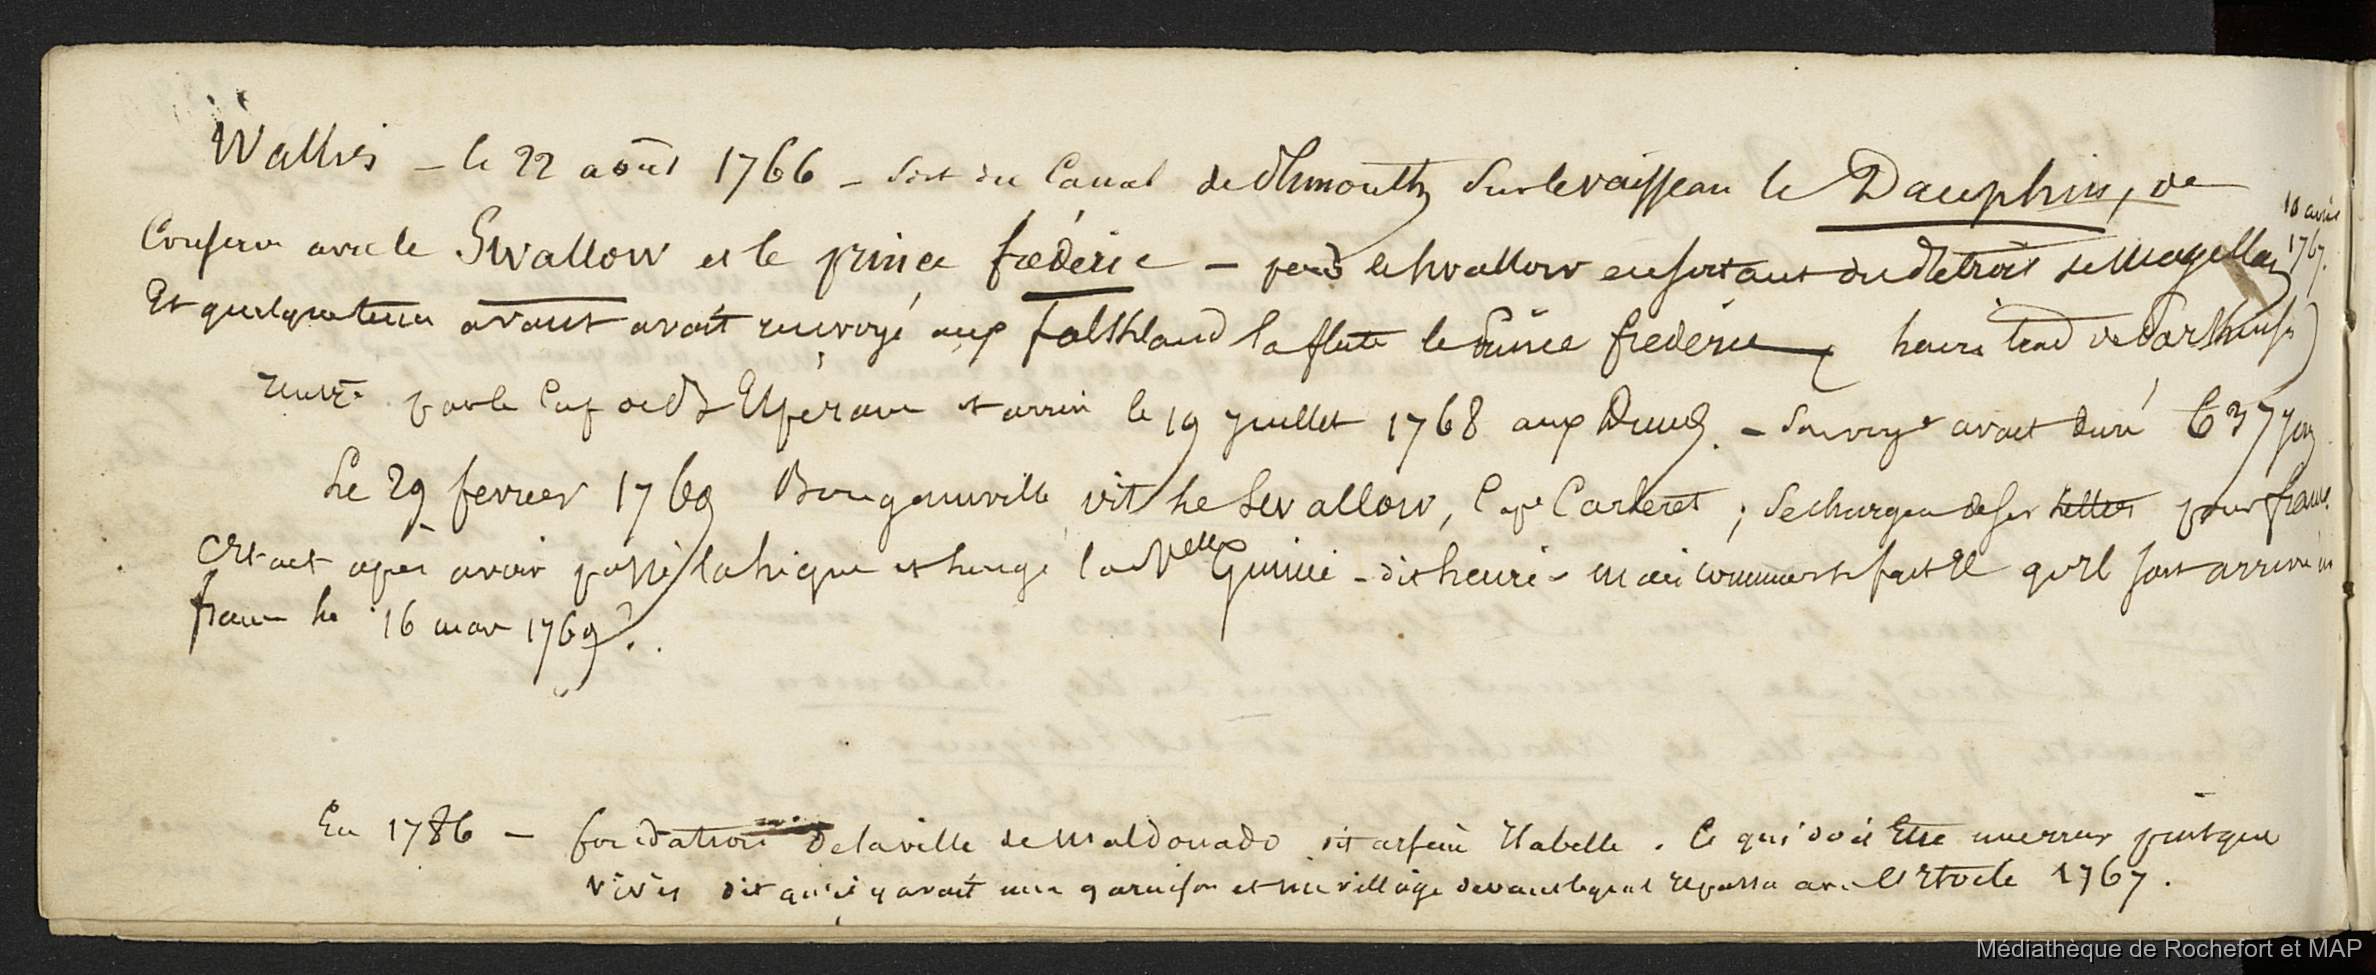 Wallis – le 22 août 1766 – sort du Canal de Plimouth sur le vaisseau le Dauphin, de
Conserve avec le Swallow et le prince frédéric – perd le Swallow en sortant du détroit de Magellan
10 avril
1767.
Et quelque tems avant avait renvoyé aux falkland la flute le Prince frederic
revt. par le Cap de Be Espérance et arrive le 19 juillet 1768 aux Dunes. – Son voyage avait duré 637 jours
Le 29 fevrier 1769 Bougainville vit le Swallow, Cape Carteret ; se chargea de ses lettres pour france.
C'était après avoir passé la ligne et longé la Nelle Guinée – dit – mais comment se fait il qu'il soit arrivé en
france le 16 mars 1769 ?.
En 1786 – fondation de la ville de Maldonado dit Isabelle. Ce qui doit Etre une erreur puisque
vivès dit qu'il y avait une garnison et un village devant lequel il passa avec l'Etoile 1767.